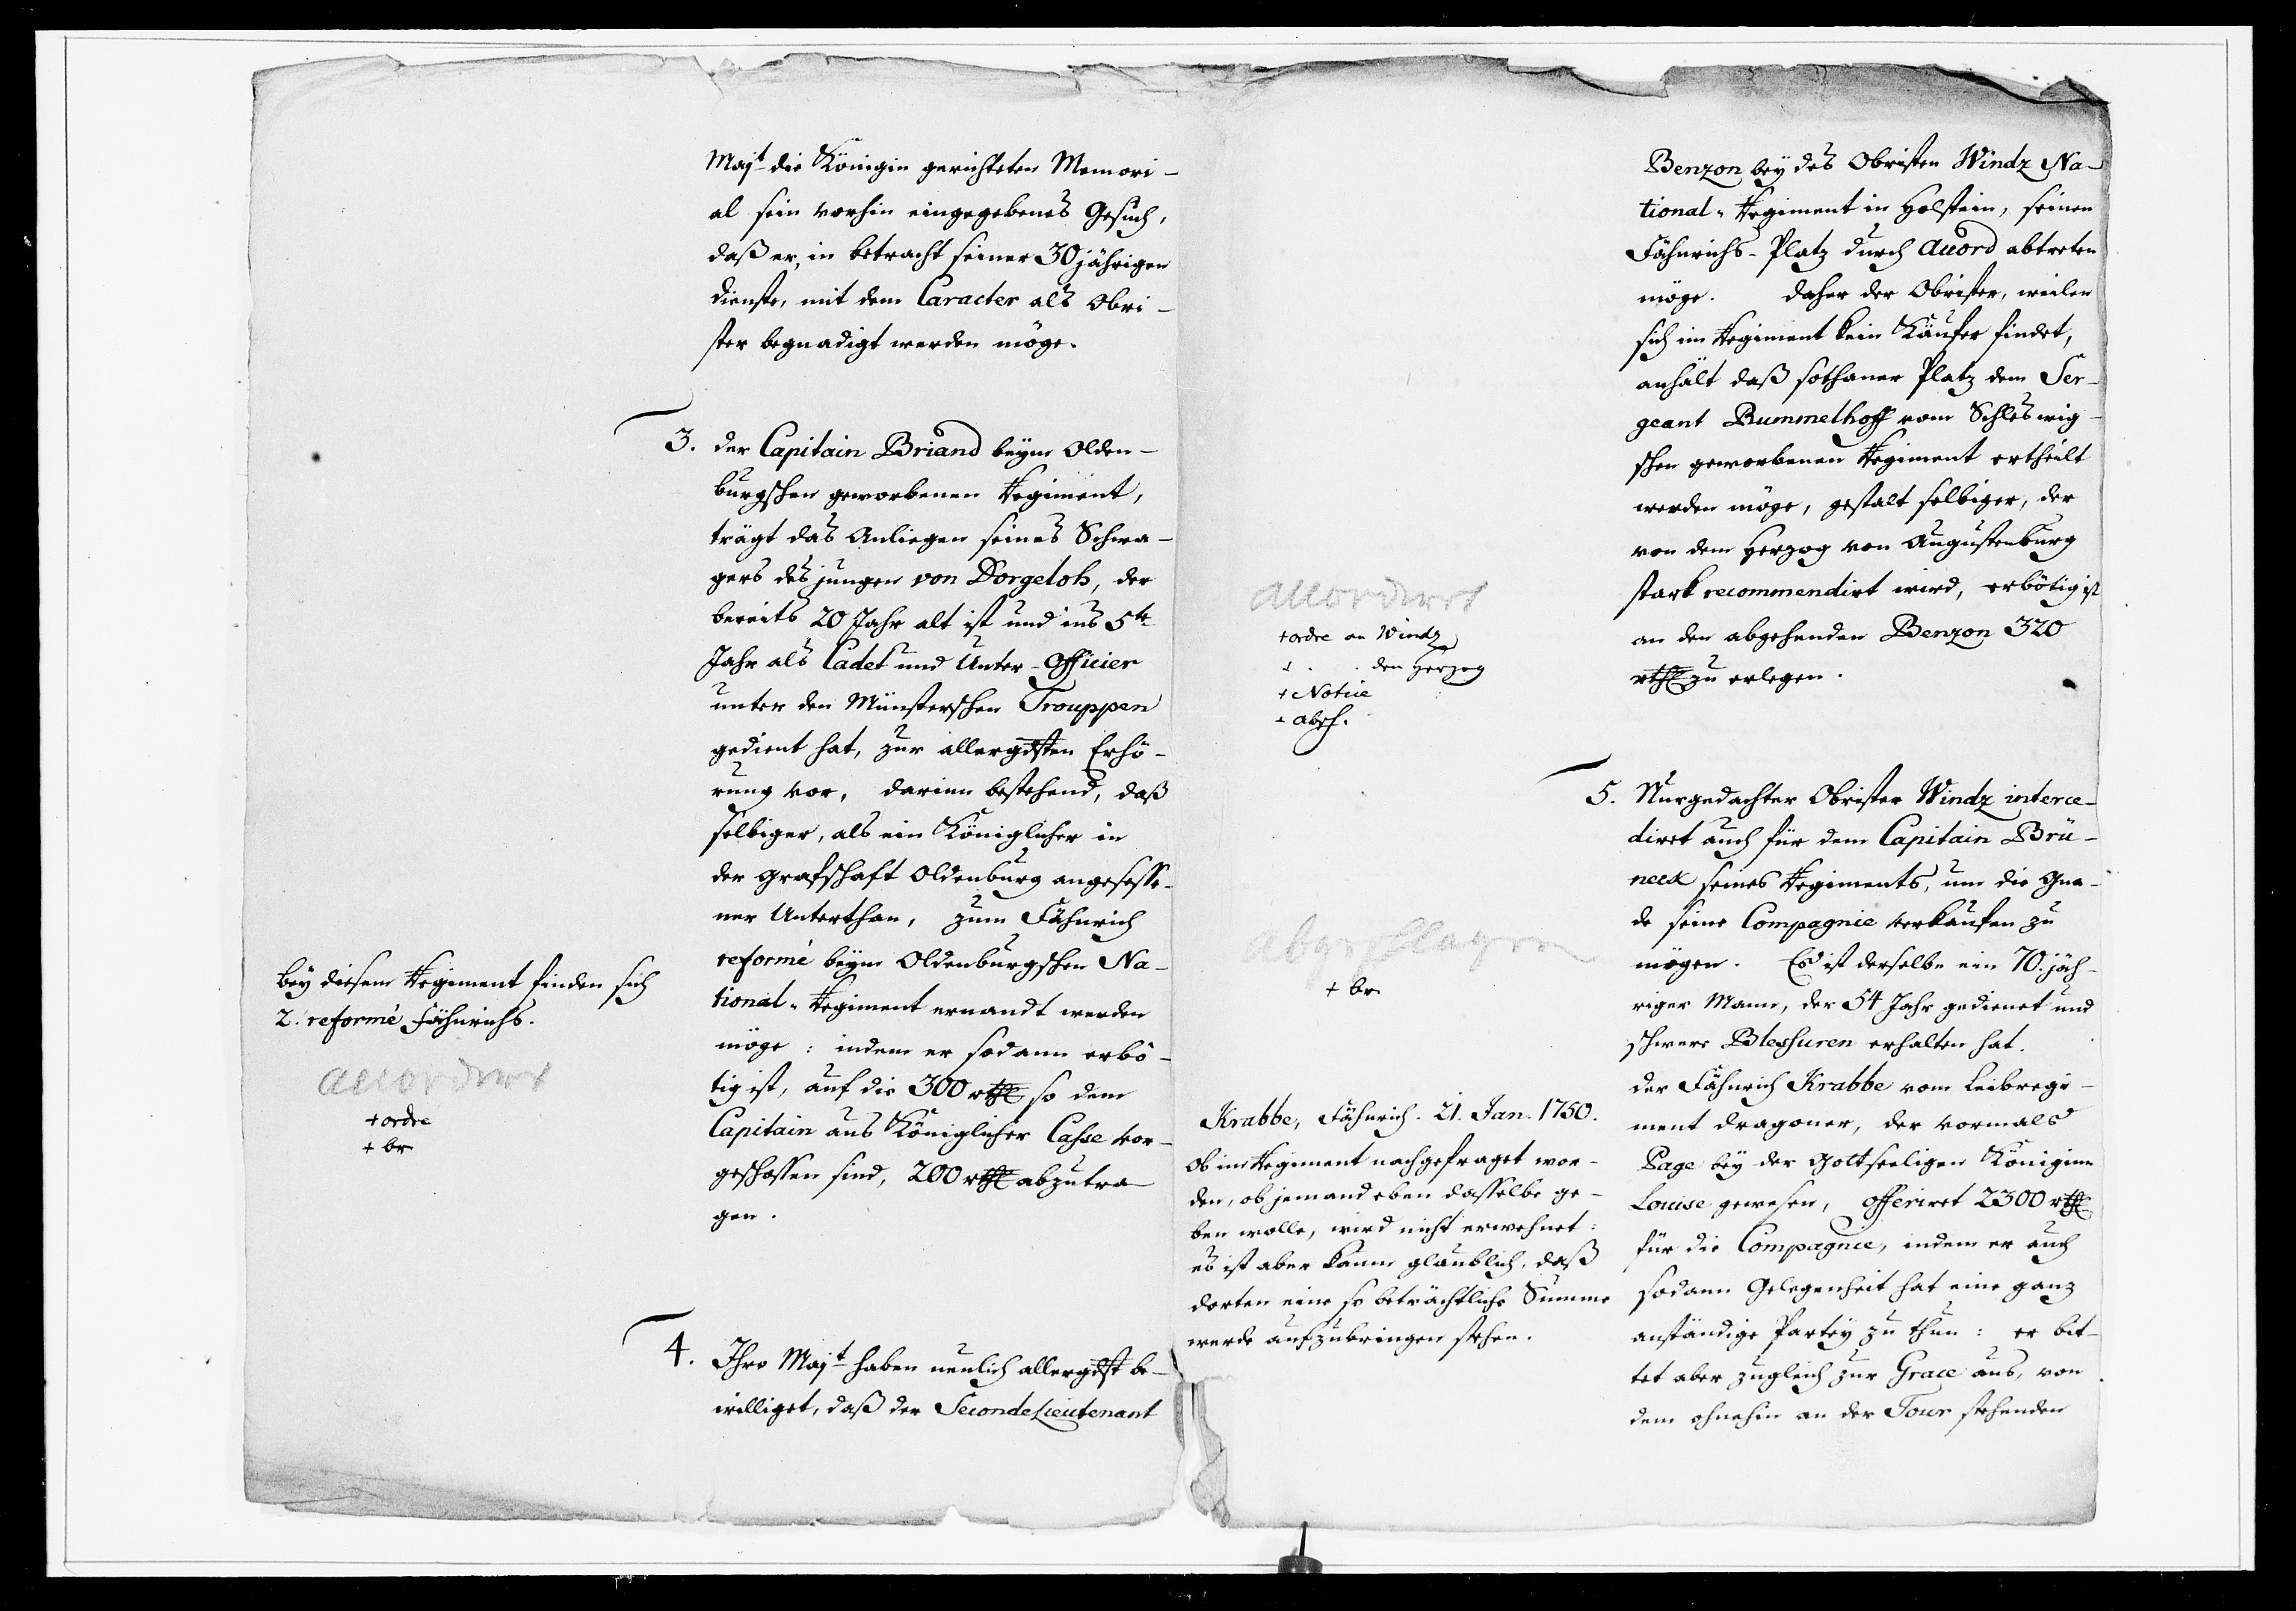 Majt die Königin gerichteten Memori-
al sein vorhin eingegebenes Gesuch,
daß er, in betracht seiner 30 jährigen
dienste, mit dem Caracter als Obri-
ster begnadigt werden möge.
3. der Capitain Briand beym Olden-
burgschen geworbenen Regiment,
trägt das Anliegen seines Schwa-
gers des jungen von Dorgeloh, der
bereits 20 Jahr alt ist und ins 5te
Jahr als Cadet und Unter-Officier
unter den Münsterschen Trouppen
gedient hat, zur allergdsten Erhö-
rung vor, darinn bestehend, daß
selbiger, als ein Königlicher in
der Grafschaft Oldenburg angesesse-
ner Unterthan, zum Fähnrich
reformé beym Oldenburgschen Na-
tional-Regiment ernandt werden
möge: indem er sodann erbö-
tig ist, auf die 300 rthl so dem
Capitain aus Königlicher Casse vor-
geschossen sind, 200 rthl abzutra-
gen.
bey diesem Regiment finden sich
2. reformé Fähnrichs.
accordirt
+ ordre
+ br
4. Ihro Majt haben neulich allergdst be-
williget, daß der SecondeLieutenant
Benzon bey des Obristen Windz Na-
tional-Regiment in Holstein, seinen
Fähnrichs-Platz durch Accord abtreten
möge. daher der Obrister, weilen
sich im Regiment kein Käufer findet,
anhält daß sothaner Platz dem Ser-
geant Bummelhoff vom Schleswig-
schen geworbenen Regiment ertheilt
werden möge, gestalt selbiger, der
von dem Herzog von Augustenburg
stark recommendirt wird, erbötig ist
an den abgehenden Benzon 320
rthl zu erlegen.
accordirt
+ ordre an Windz
+ . . den Herzog
+ Notice
+ absch.
5. Nurgedachter Obrister Windz interce-
diret auch für dem Capitain Brü-
neck seines Regiments, um die Gna-
de seine Compagnie verkaufen zu
mögen. Es ist derselbe ein 70. jäh-
riger Mann, der 54 Jahr gedienet und
schwere Blessuren erhalten hat.
der Fähnrich Krabbe vom Leibregi-
ment dragoner, der vormals
Page bey der Gottseeligen Königinn
Louise gewesen, offeriret 2300 rthl
für die Compagnie, indem er auch
sodann Gelegenheit hat eine ganz
anständige Partey zu thun: er bit-
tet aber zugleich zur Grace aus, von
dem ohnehin an der Tour stehenden
abgeschlagen
+ br
Krabbe, Fähnrich. 21. Jan. 1750.
Ob im Regiment nachgefraget wor-
den, ob jemand eben dasselbe ge-
ben wolle, wird nicht erwehnet:
es ist aber kaum glaublich, daß
dorten eine so beträchtliche Summe
werde aufzubringen stehen.